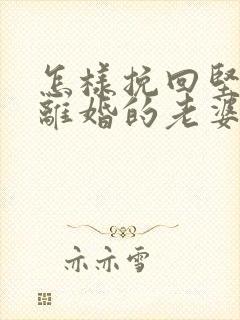 怎樣挽回堅
離婚的老婆
亦亦雪